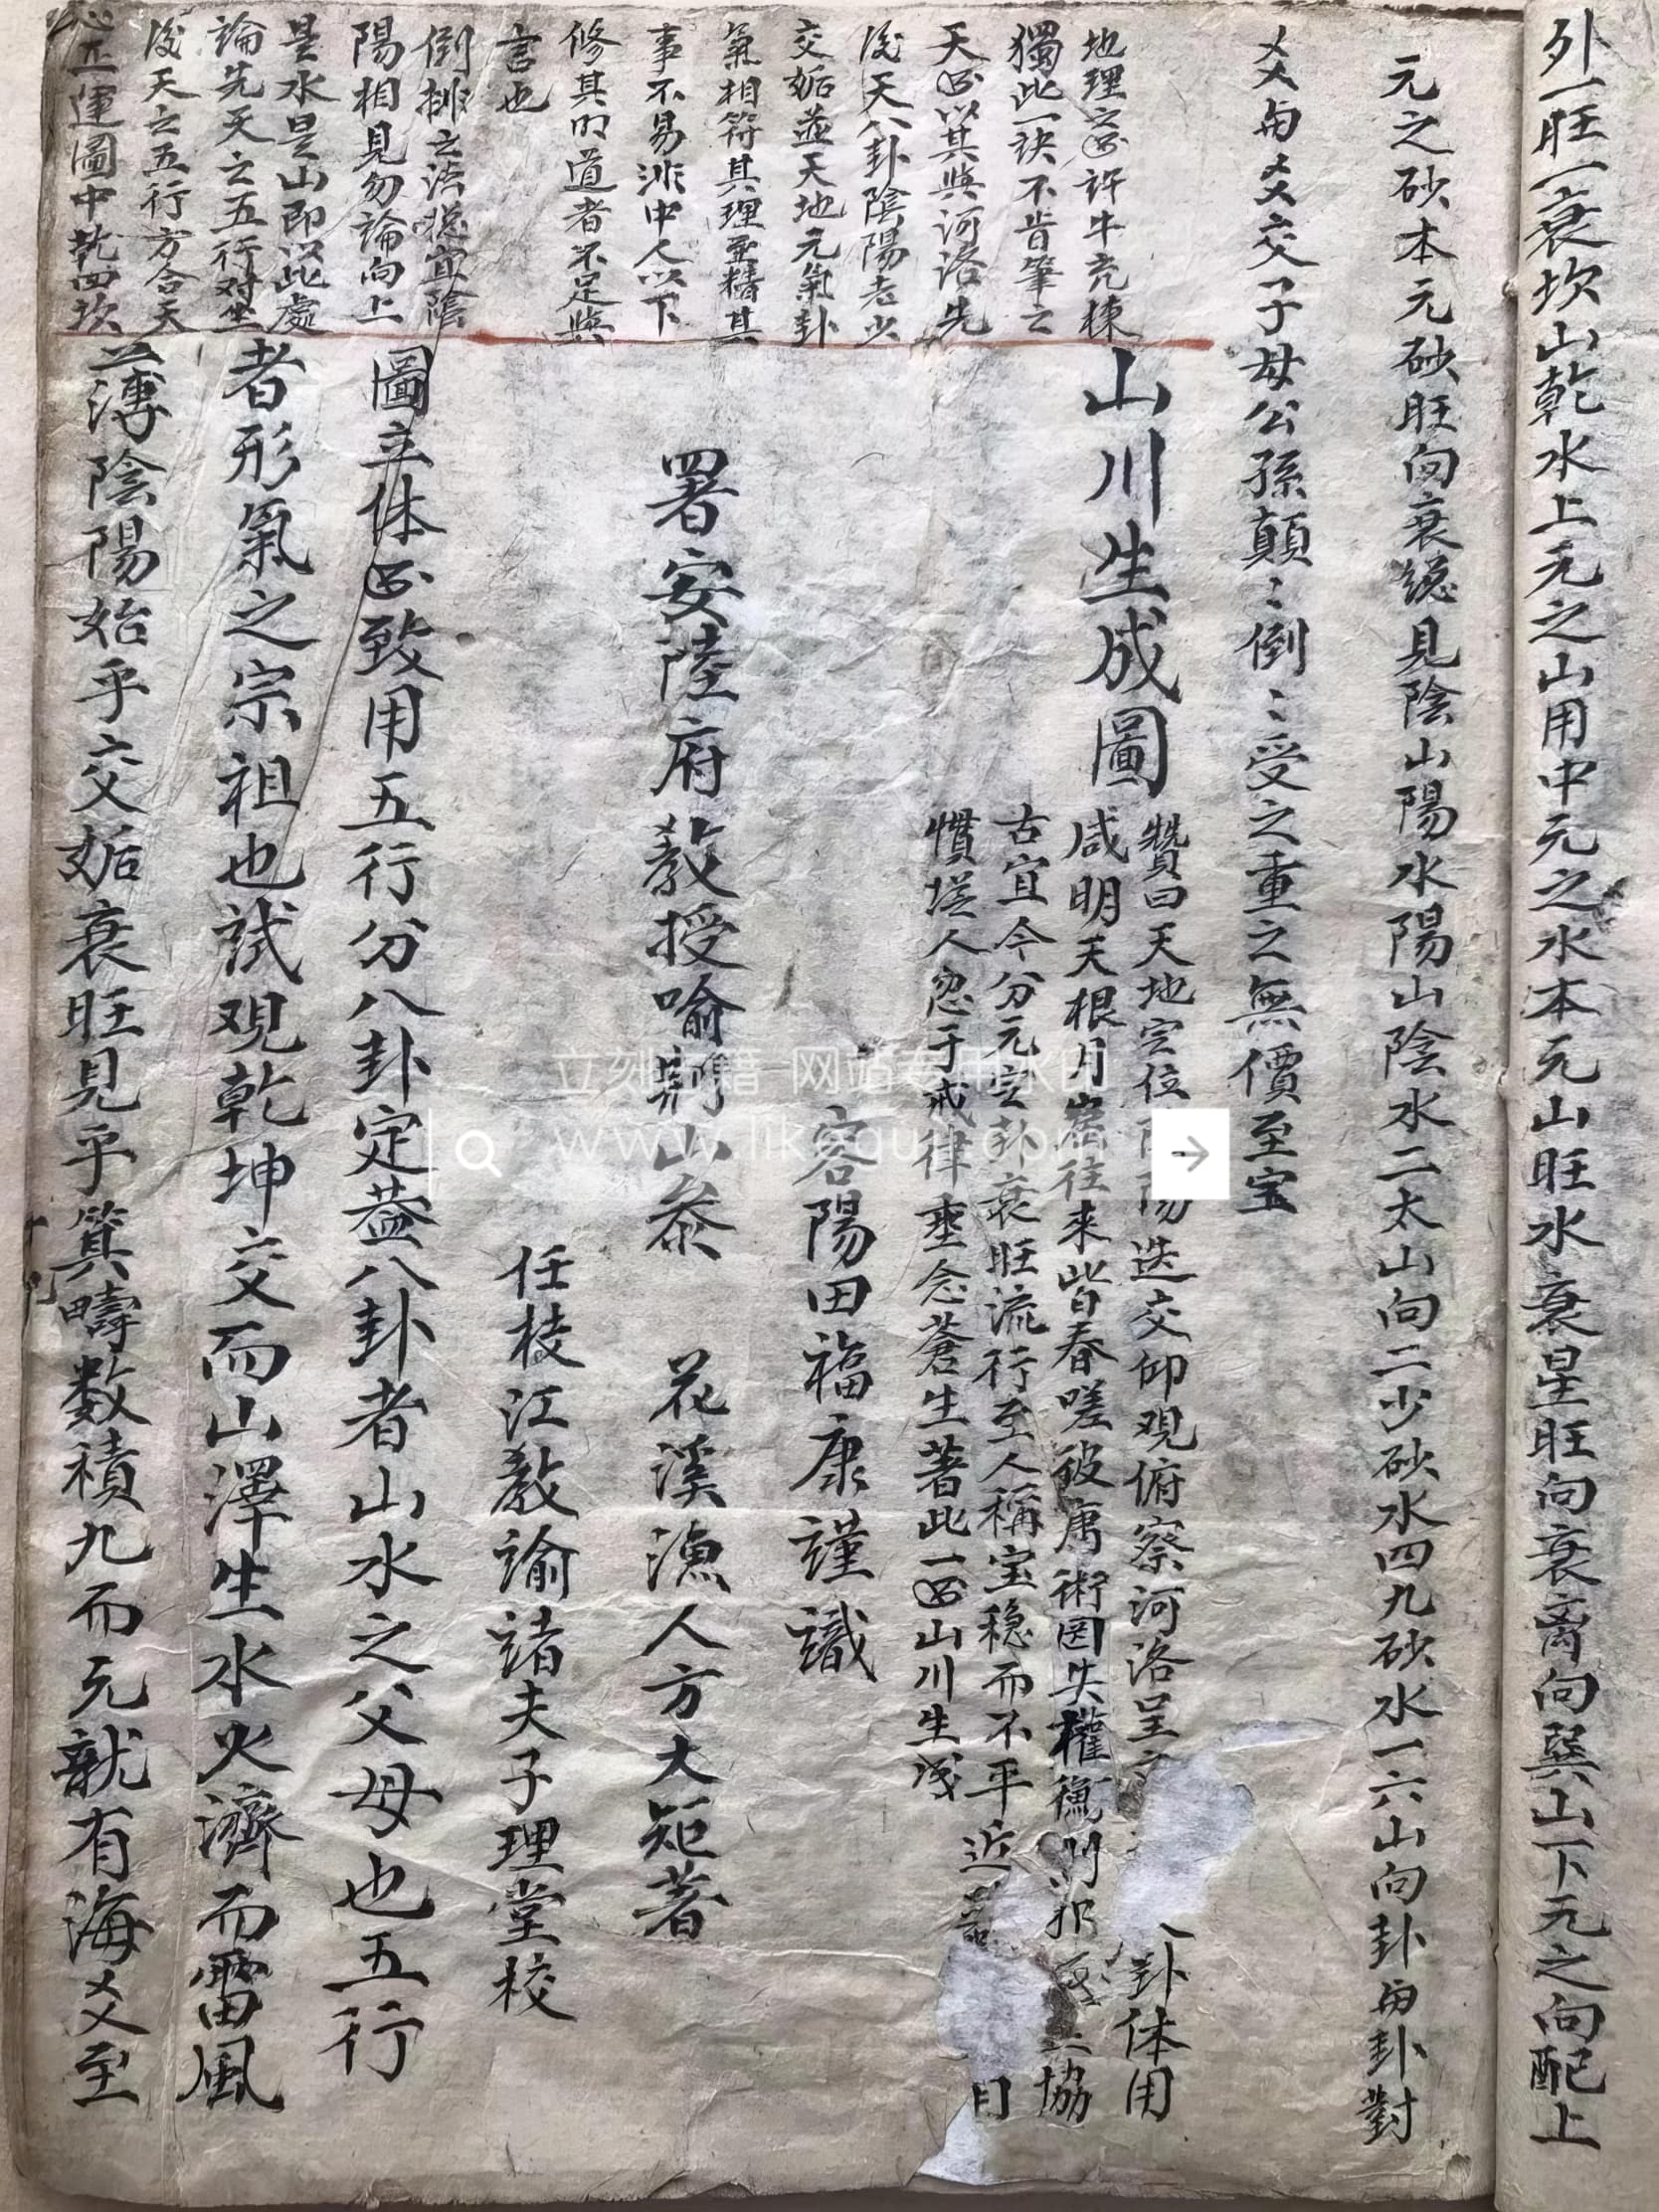 外一旺一衰坎山乾水上元之山用中元之水本元山旺水衰星旺向衰离向巽山下元之向配上
元之砂本元砂旺向衰总見陰山陽水陽山陰水二太山向二少砂水四九砂水一六山向卦与卦對
爻与爻交子母公孫顛〻倒〻受之重之無價至宝
地理之图許牛充棟
獨此一诀不肯筆之
天图以其與河洛先
後天八卦陰陽老少
交姤並天地元氣卦
氣相符其理至精其
事不易非中人以下
修其明道者不足與
言也
倒排之法总宜陰
陽相見勿論向上
是水是山即以此處
論先天之五行对坐
後天之五行方合天
心正運圖中乾四坎
山川生成圖
贊曰天地定位陰陽迭交仰观俯察河洛呈 八卦体用
咸明天根月窟往来皆春嗟彼庸術罔失權衡 協
古宜今分元定卦衰旺流行至人稱宝稳而不平近 目
慣送人忽于戒律垂念蒼生著此一图山川生成
容陽田福康謹識
署安陸府教授喻荆山叅 花溪漁人方大矩著
任枝江教谕諸夫子理堂校
圖立体图致用五行分八卦定葢八卦者山水之父母也五行
者形氣之宗祖也試观乾坤交而山澤生水火濟而雷風
薄陰陽始乎交姤衰旺見乎箕疇数積九而元就有海爻至
立刻古籍 网站专用水印
www.likeguji.com